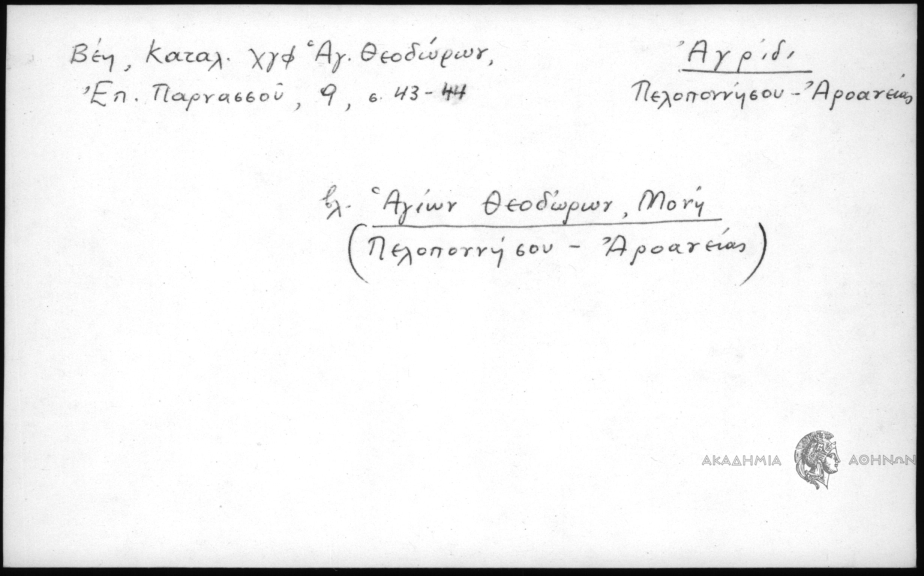 Βέη, Καταλ. χγφ Ἁγ. Θεοδώρων,
Ἐπ. Παρνασσοῦ, 9, σ. 43-44
Ἀγρίδι
Πελοποννήσου - Ἀροανείας
βλ. Ἁγίων Θεοδώρων, Μονή
(Πελοποννήσου - Ἀροανείας)
ΑΚΑΔΗΜΙΑ ΑΘΗΝΩΝ